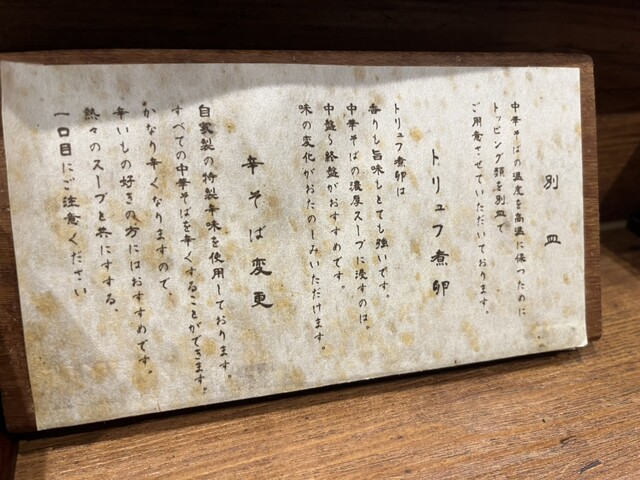 別皿
中華そばの温度を高温に保つために
トッピング類を別皿で
ご用意させていただいております。
トリュフ煮卵
トリュフ煮卵は
香りも旨味もとても強いです。
中華そばの濃厚スープに浸すのは。
中盤〜終盤がおすすめです。
味の変化がおたのしみいただけます。
辛そば変更
自家製の特製辛味を使用しております。
すべての中華そばを辛くすることができます。
かなり辛くなりますので、
辛いもの好きの方にはおすすめです。
熱々のスープと共にすする、
一口目にご注意ください